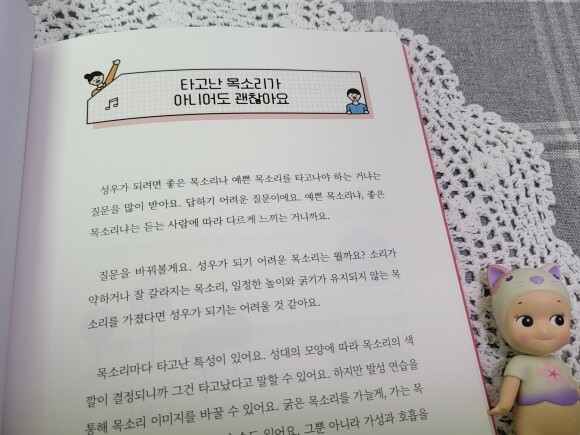 타고난 목소리가
아니어도 괜찮아요
성우가 되려면 좋은 목소리나 예쁜 목소리를 타고나야 하는 거냐는
질문을 많이 받아요. 답하기 어려운 질문이에요. 예쁜 목소리냐, 좋은
목소리냐는 듣는 사람에 따라 다르게 느끼는 거니까요.
질문을 바꿔볼게요. 성우가 되기 어려운 목소리는 뭘까요? 소리가
약하거나 잘 갈라지는 목소리, 일정한 높이와 굵기가 유지되지 않는 목
소리를 가졌다면 성우가 되기는 어려울 것 같아요.
목소리마다 타고난 특성이 있어요. 성대의 모양에 따라 목소리의 색
깔이 결정되니까 그건 타고났다고 말할 수 있어요. 하지만 발성 연습을
통해 목소리 이미지를 바꿀 수 있어요. 굵은 목소리를 가늘게, 가는 목
수도 있어요. 그뿐 아니라 가성과 호흡을